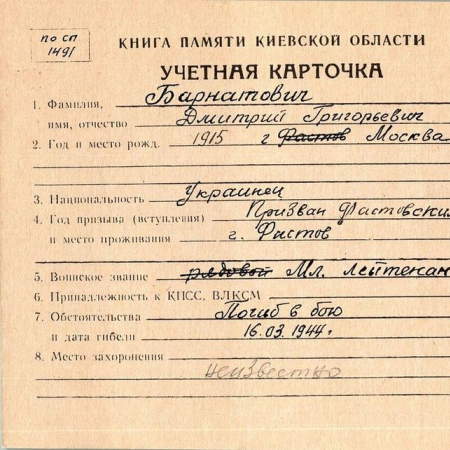 по сп
1491
КНИГА ПАМЯТИ КИЕВСКОЙ ОБЛАСТИ
УЧЕТНАЯ КАРТОЧКА
1. Фамилия, Барнатович
имя, отчество Дмитрий Григорьевич
2. Год и место рожд. 1915 г Фастов Москва
3. Национальность Украинец
4. Год призыва (вступления) Призван Фастовски
и место проживания г. Фастов
5. Воинское звание рядовой Мл. лейтенан
6. Принадлежность к КПСС, ВЛКСМ
7. Обстоятельства Погиб в бою
и дата гибели 16.03.1944г
8. Место захоронения
неизвестно